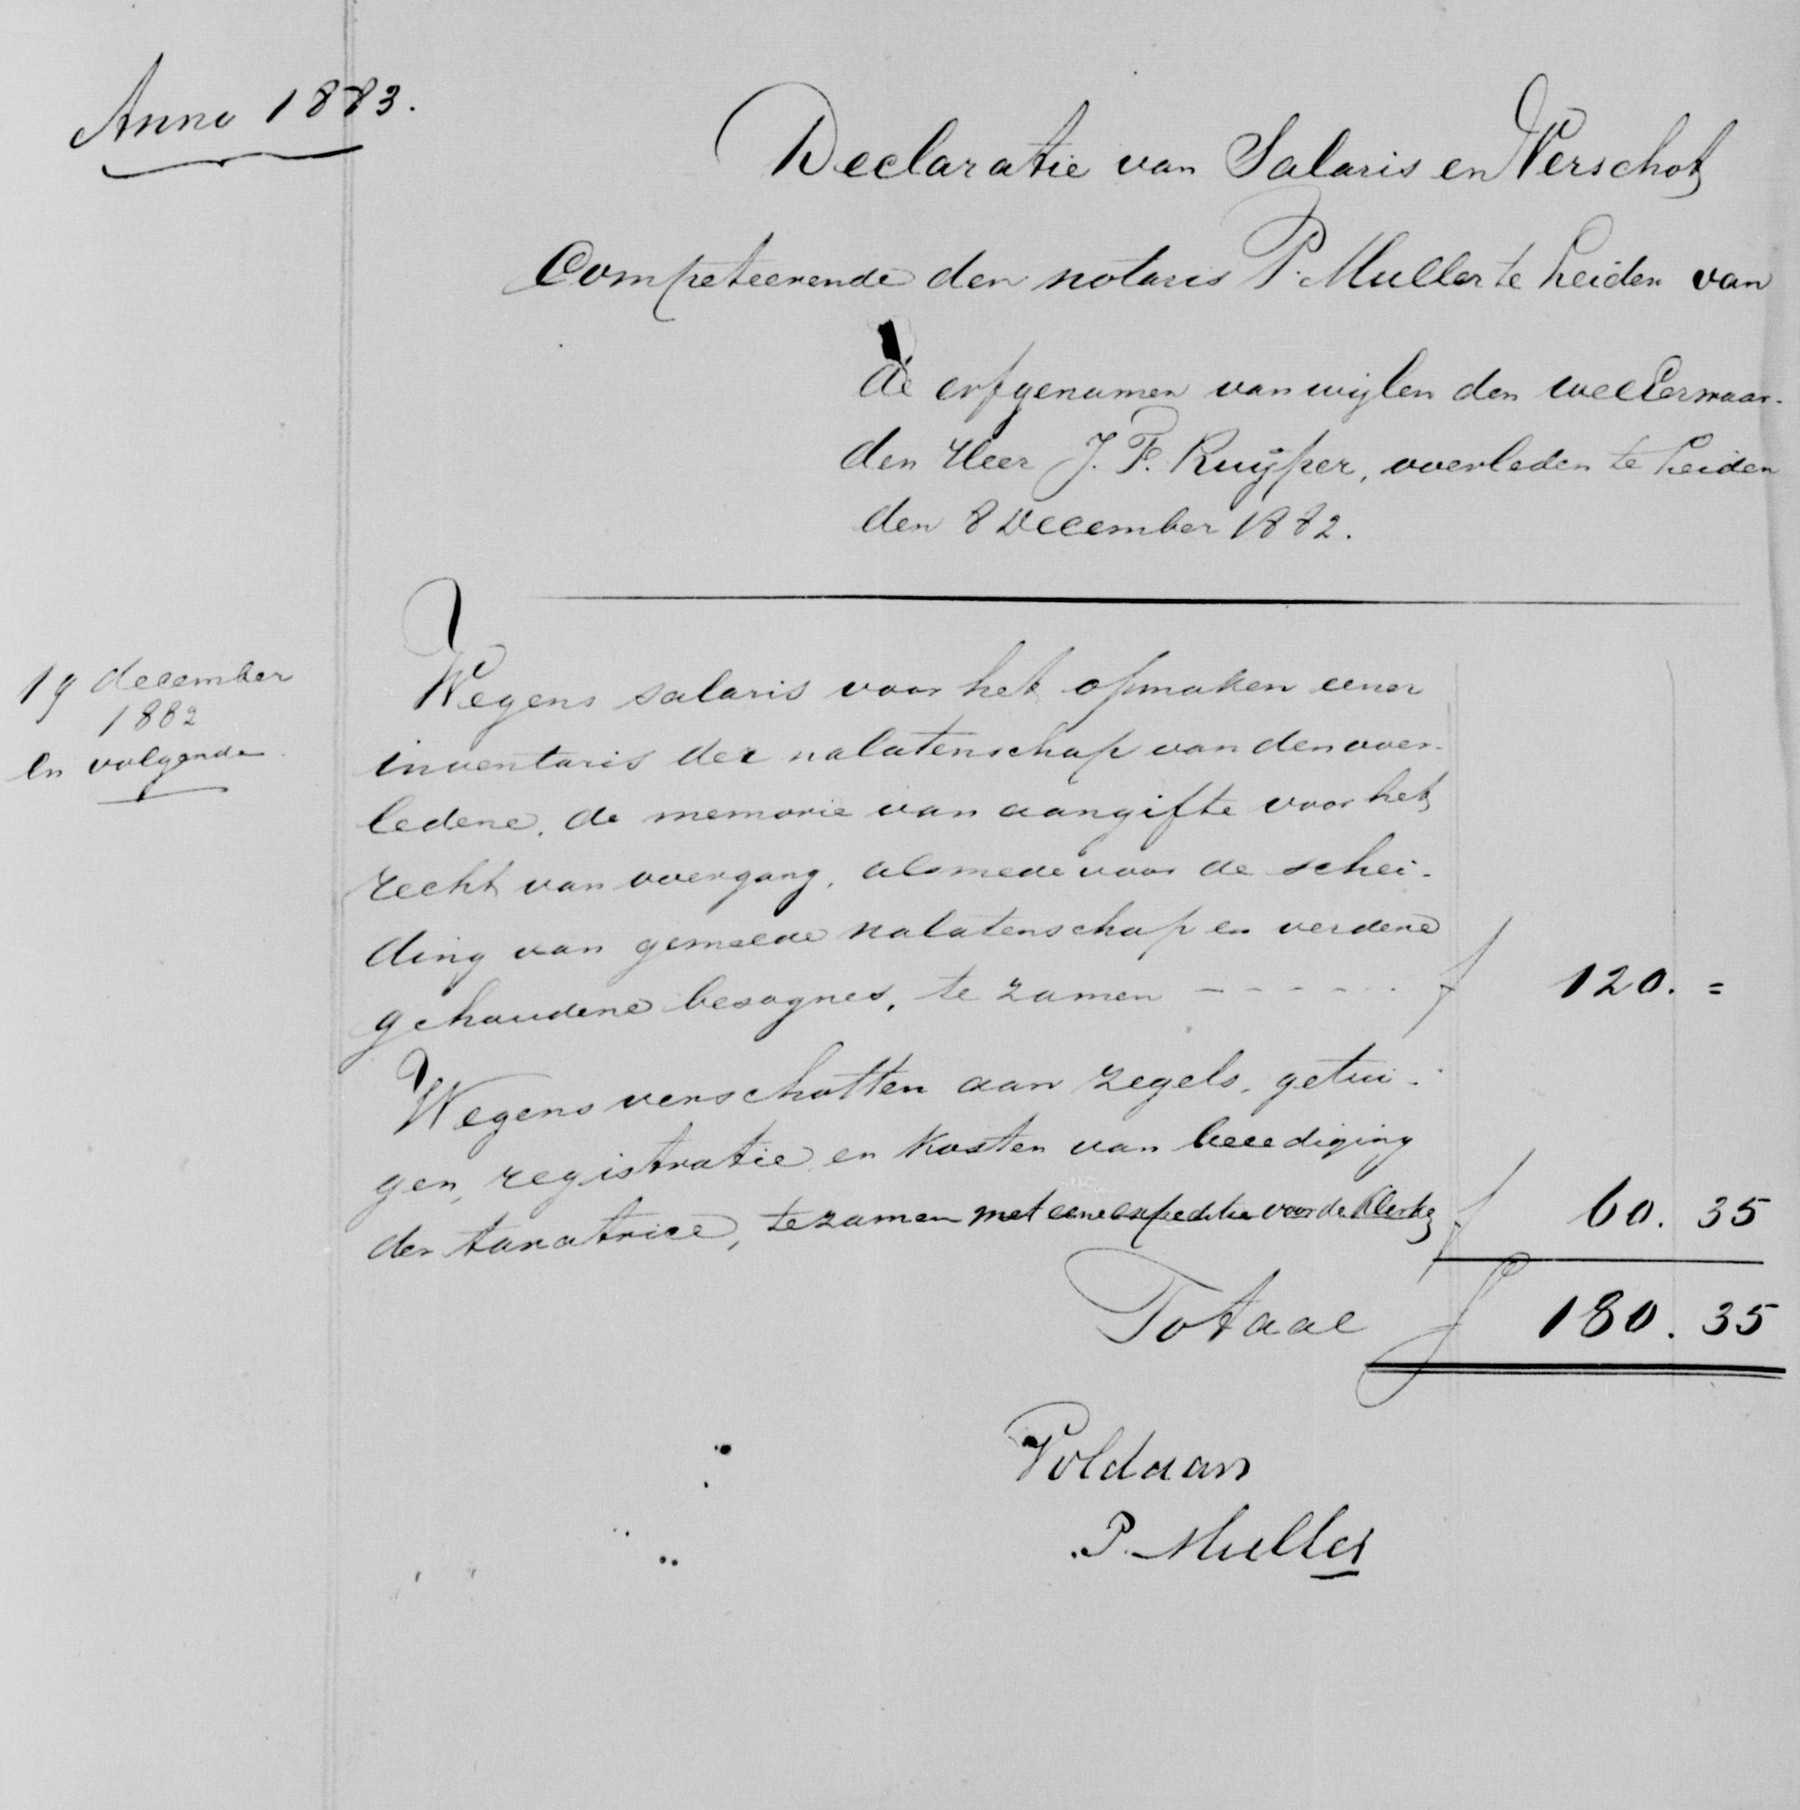 Anno 1883.
Declaratie van Salaris en Verschot
Competeerende den notaris P. Muller te Leiden van
de erfgenamen van wijlen den weleerwaar-
den Heer J. F. Kuijper, overleden te Leiden
den 8 December 1882.
19 december
1882
en volgende
Wegens salaris voor het opmaken eener
inventaris der nalatenschap van den over-
ledene, de memorie van aangifte voor het
recht van overgang, alsmede voor de schei-
ding van gemelde nalatenschap en verdere
gehoudene besognes, te zamen - - - - - - f 120. =
Wegens verschotten aan zegels, getui-
gen, registratie en kosten van beëediging
der taxatrice, te zamen met eene expeditie voor de Kerk f 60. 35
Totaal f 180. 35
Voldaan
P. Muller